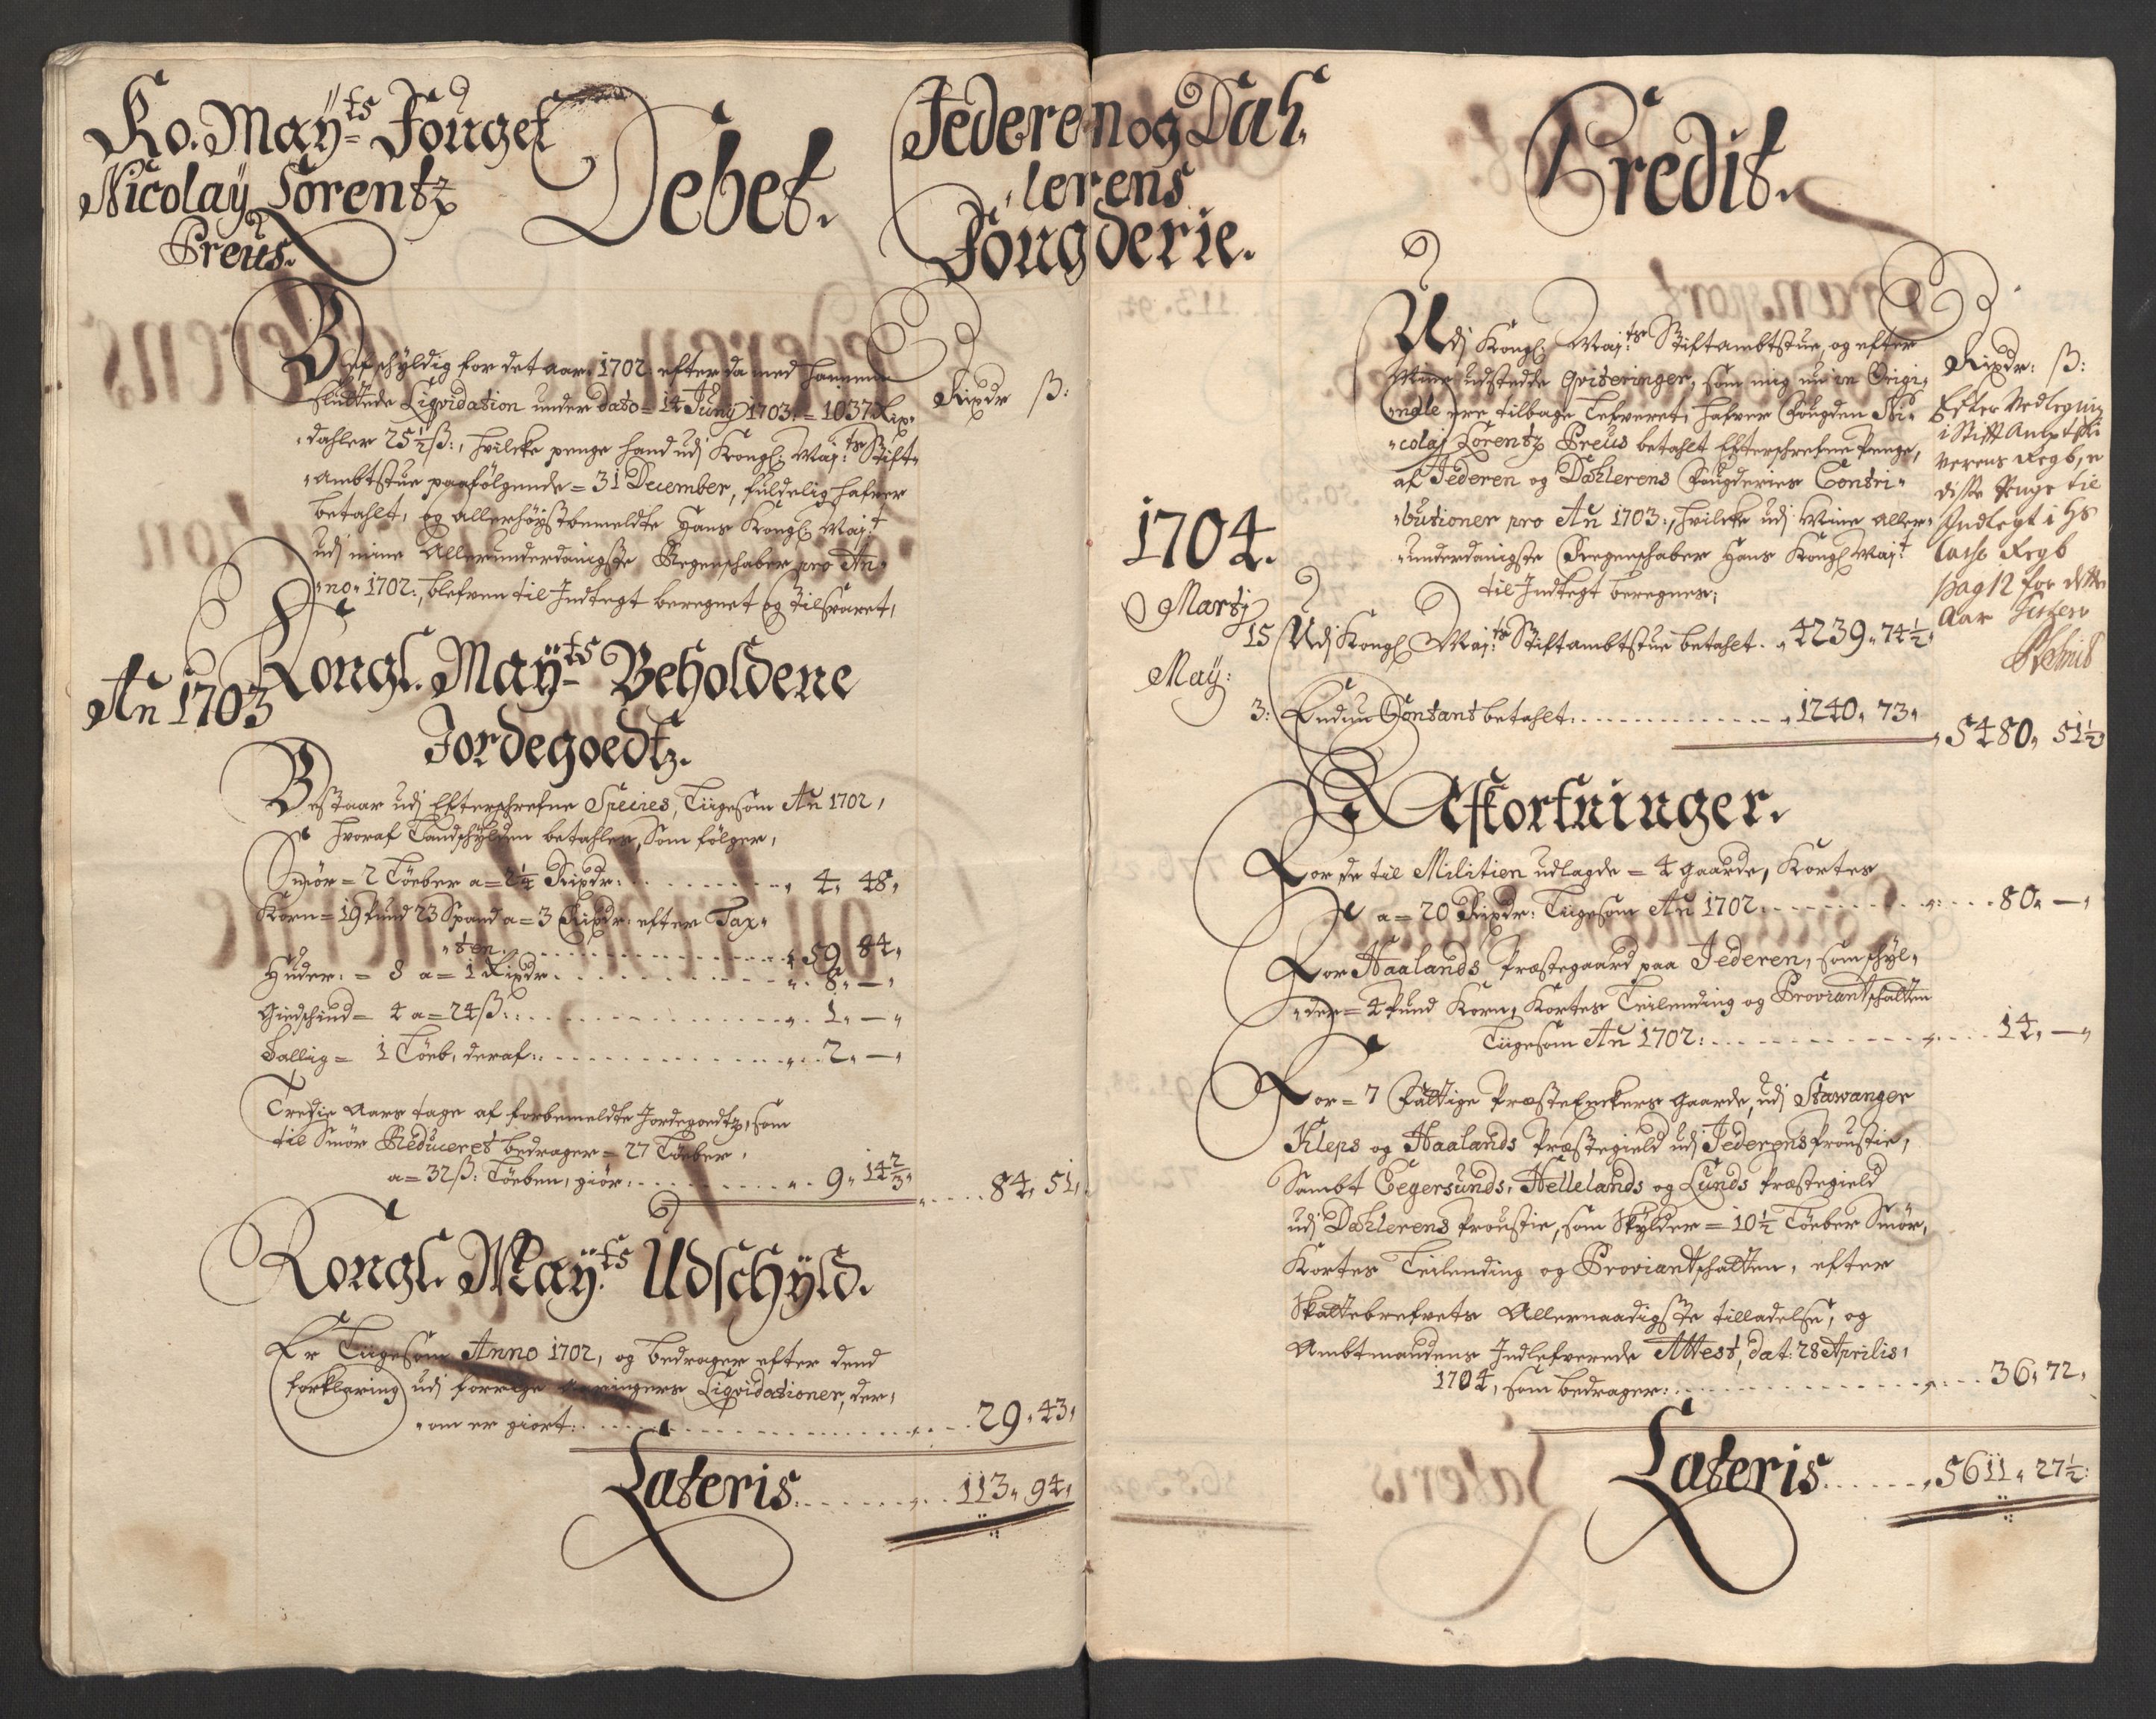 Ko. Maÿts Fouget
Nicolaÿ Lorentz
Preus.
Debet.
Jederen og Dah,
,lerens
Fougderie.
Rixdr ß:
Blef schÿldig for det aar 1702. efter da med hannem
sluttede Liqvidation under dato= 14 Junÿ 1703.= 1037 Rix,
,dahler 25½ ß:, hvilcke penge hand udj Kongl: Maj:ts Stift,
,ambtstue paafölgende= 31 December, fuldelig hafver
betahlt, og allerhöÿstbemeldte Hans Kongl: Maj:t
udj mine Allerunderdanigste Regenschaber pro An,
,no, 1702:, blefven til Indtegt beregnet og tilsvaret,
An 1703
Kongl. Maÿts Beholdene
Jordegoedtz.
Bestaar udj Efterschrefne Species, Liigesom An 1702,
hvoraf Landschÿlden betahles, Som fölger,
Smör= 2 Löeber a= 2¼ Rixdr: 4, 48,
Korn= 19 Pund 23 Spand a= 3 Rixdr: efter Tax,
,ten. 59, 84,
Huder:= 8 a= 1 Rixdr 8, —,
Giedschind= 4 a= 24 ß: 1, —,
Sallig= 1 Löeb, deraf: 2, —,
Tredie Aars tage af forbemeldte Jordegoedtz, som
til Smör Reduceret bedrager= 27 Löeber,
a= 32 ß: Löeben, giör: 9, 14⅔, 84, 51,
Kongl. Maÿts Udschÿld.
Er Liigesom Anno 1702, og bedrager efter dend
forklaring udj forrige Liqvidationer, der,
,om er giort: 29, 43,
Lateris 113, 94,
Credit.
Udj Kongl: Maj:ts Stiftambtstue, og efter
Mine udstedde Qviteringer, som mig nu in Origi,
,nale ere tilbage Lefveret, hafver Fougden Ni,
,colaj Lorentz Preus betahlt Efterschrefne Penge,
af Jederen og Dahlerens Fougderies Contri,
,butioner pro An 1703:, hvilcke udj Mine Aller,
,underdanigste Regenschaber Hans Kongl Maj:t
til Indtegt beregnes;
Rixdr: ß:
Efter Vedlegning
i Stift Ampt Schri
verens Regb, er
disse Penge til
Indtegt i Hs
Cassa Regb
pag 12 for dette
Aar
1704.
Martij
15 Udj Kongl Maj:ts Stiftambtstue betahlt. 4239, 74½,
May:
3: Endnu Contant betahlt: 1240, 73,
5480, 51½
Afkortninger.
For de til Militien udlagde= 4 gaarde, Kortes
a= 20 Rixdr: Liigesom An 1702: 80, —,
For Haalands Præstegaard paa Jederen, som schÿl,
,der= 4 Pund Korn, Kortes Leilending og Proviantschatten
Liigesom An 1702: 14, —,
For= 7 Fattige PræsteEnckers Gaarde, udj Stawanger
Kleps og Haalands Præstegield udj Jederens Proustie,
Sambt Eegersunds, Hellelands og Lunds Præstegield
udj Dahlerens Proustie, som Skÿlder= 10½ Löeber Smör,
Kortes Leilending og Proviantschatten, efter
Skattebrefvets Allernaadigste tilladelse, og
Ambtmandens Indlefverede Attest, dat: 28 Aprilis,
1704, som bedrager: 36, 72,
Lateris 5611, 27½: